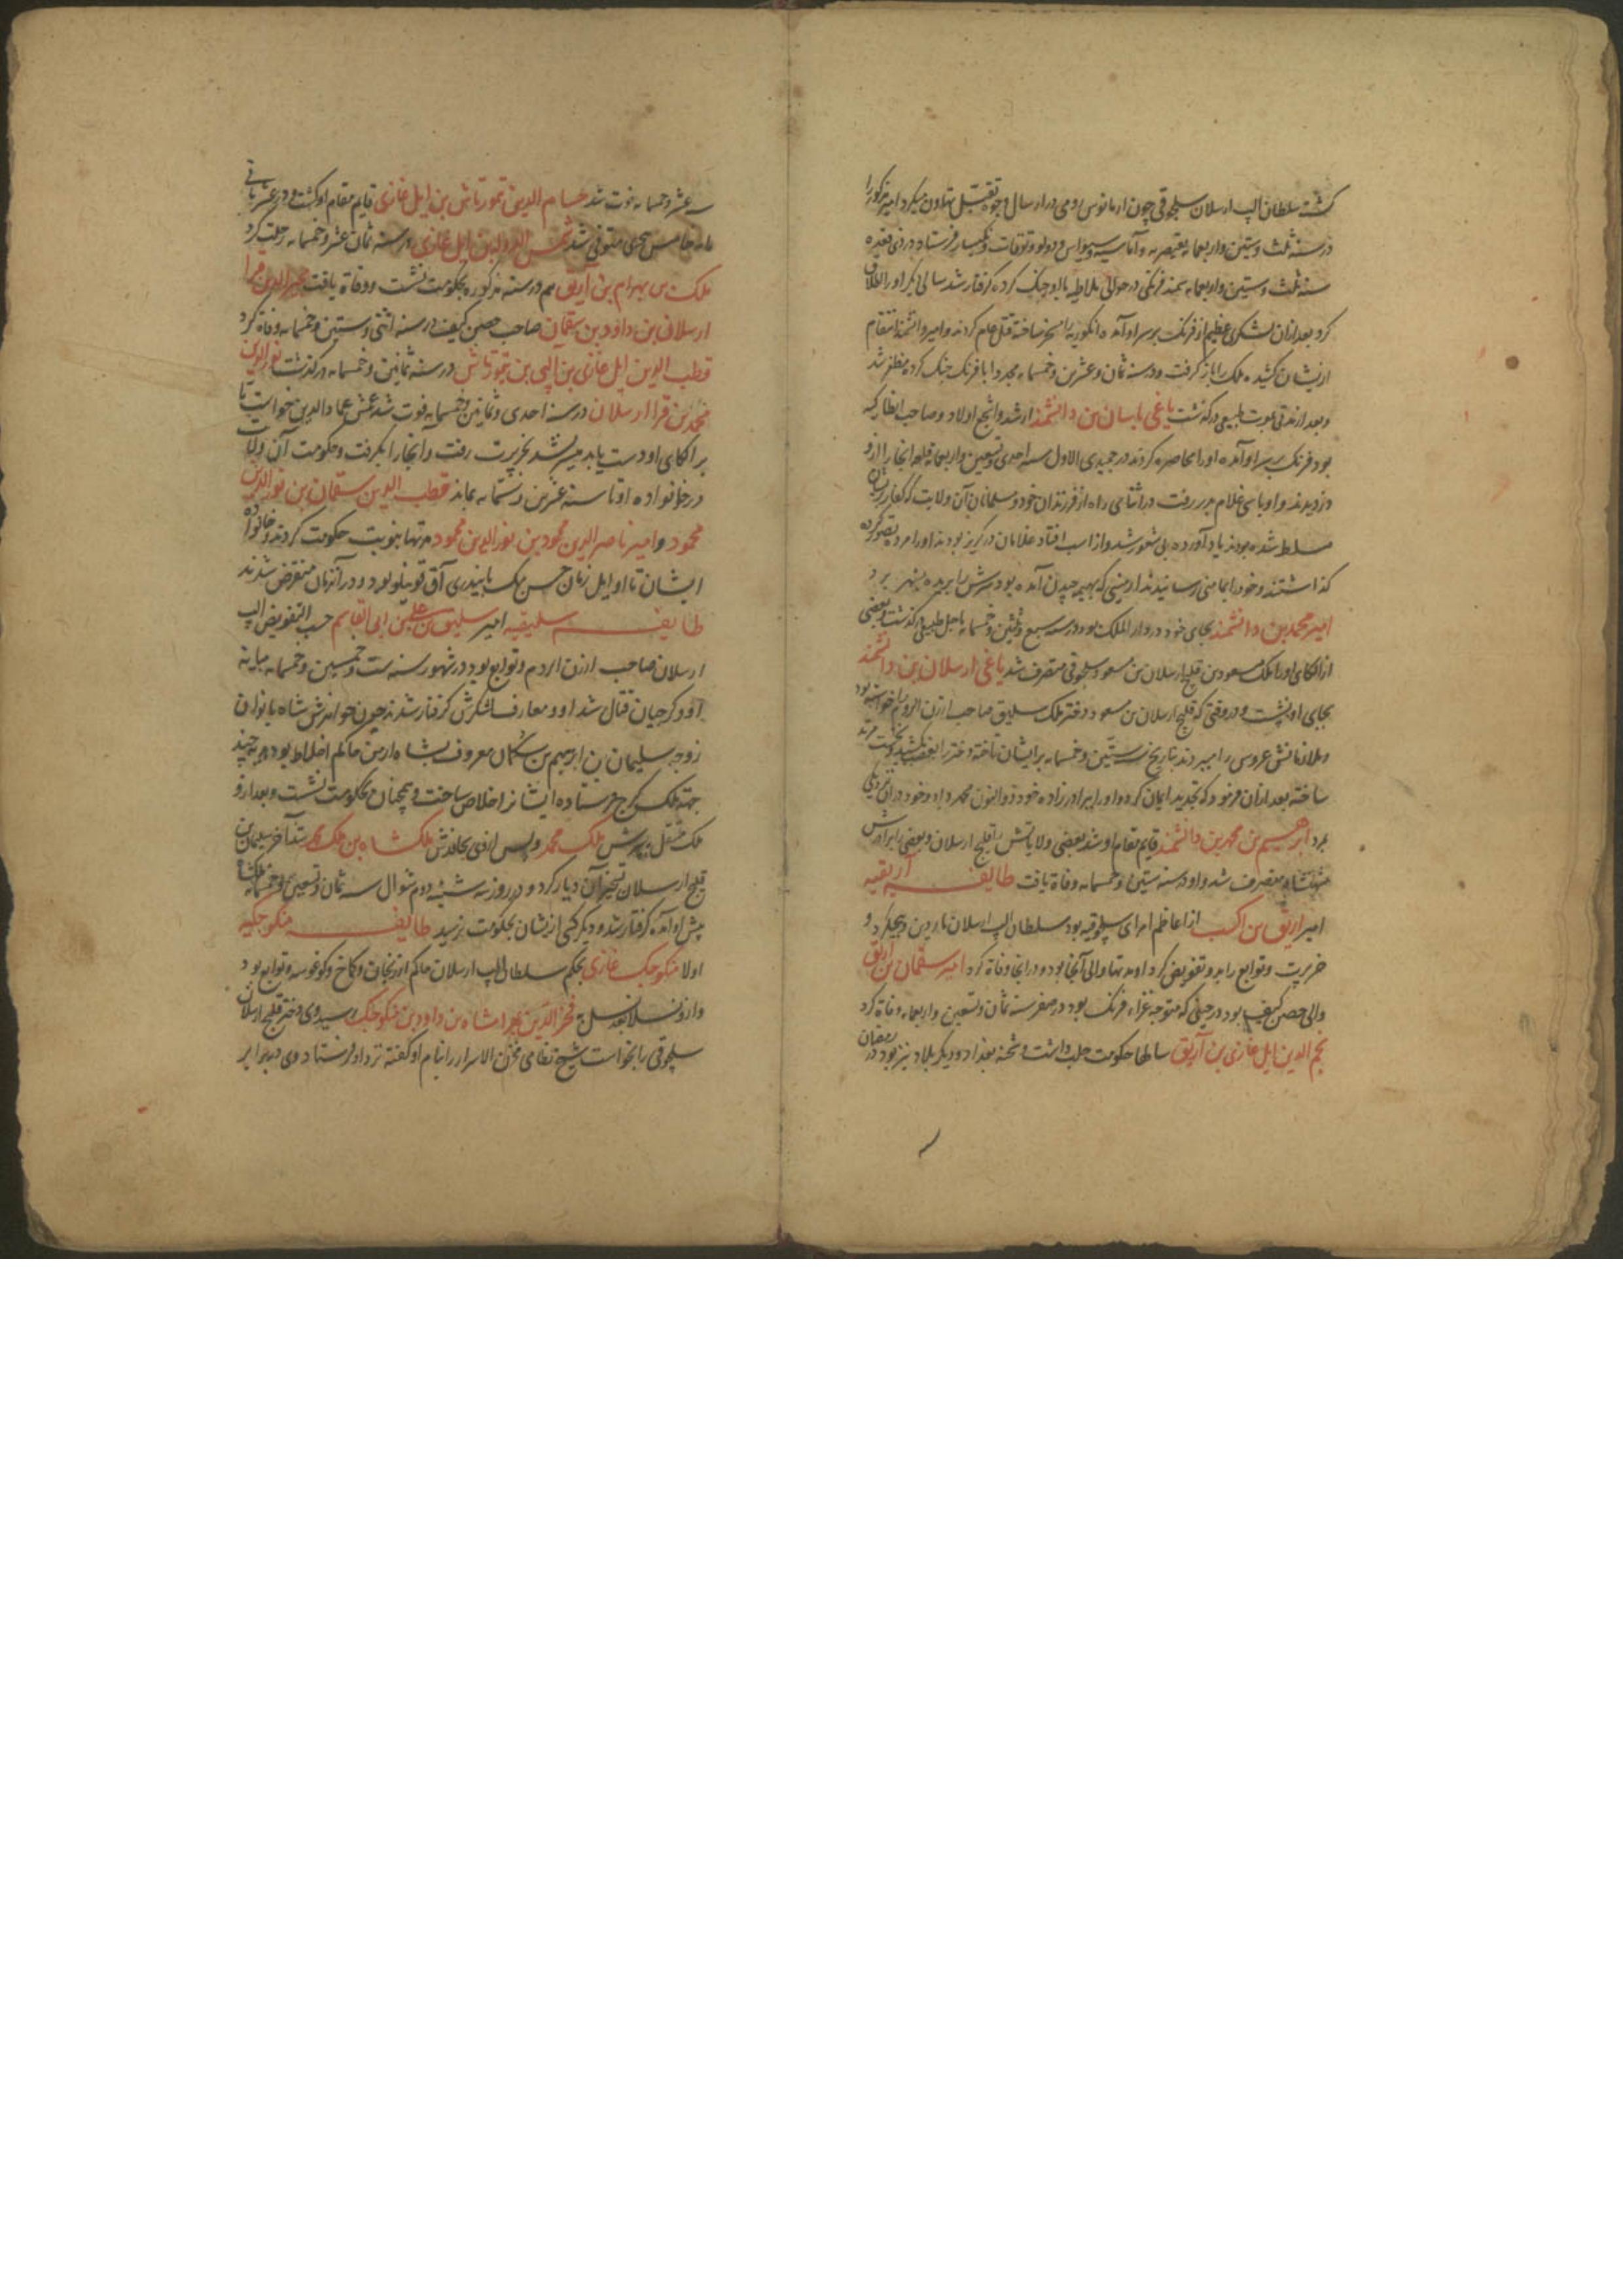 کشته سلطان الپ ارسلان سلجوقی چون ارمانوس رومی در ارسال وجوه تقبل تهاون میکرد امیر مذکور را
در سنه ثلث و ستین و اربعمایه بقیصریه و آماسیه و سیواس و دولو و توقات و نکیسار فرستاد در ذی قعده
سنه ثلث و ستین و اربعمایه سمند فرنگی در حوالی ملاطیه با او جنگ کرده گرفتار شد سالی دیگر او را اطلاق
کرد بعد ازان لشکری عظیم از فرنگ بر سر او آمده انکوریه را مسخر ساخته قتل عام کردند و امیر دانشمند انتقام
ازیشان کشیده ملک را باز گرفت و در سنه ثمان و عشرین و خمسمایه مجددا با فرنگ جنگ کرده مظفر شد
و بعد از مدتی بموت طبیعی درگذشت یاغی باسان بن دانشمند ارشد و اشجع اولاد و صاحب انطاکیه
بود فرنگ بر سر او آمده او را محاصره کردند در جمیدی الاول سنه احدی و تسعین و اربعمایه قلعه انجا را ازو
دزدیدند و او با سی غلام بدر رفت در اثنای راه از فرزندان خود و مسلمانان آن ولایت که کفار بریشان
مسلط شده بودند یاد آورده بی شعور شد و از اسب افتاد غلامان در گریز بودند او را مرده تصور کرده
گذاشتند و خود را بمامنی رسانیدند ارمنیی که بهیمه چیدن آمده بود سرش را بریده بشهر برد
امیر محمد بن دانشمند بجای خود در دار الملک بود در سنه سبع و ثلثین و خمسمایه باجل طبیعی درگذشت و بعضی
از الکای او را ملک مسعود بن قلیج ارسلان بن مسعود سلجوقی متصرف شد یاغی ارسلان بن دانشمند
بجای او نشست و در وقتی که قلیج ارسلان بن مسعود دختر ملک سلیق صاحب ارزن الروم را خواسته بود
و ملازمانش عروس را میبردند بتاریخ ستین و خمسمایه بر ایشان تاخته دختر را بغضب کشید بحجت مرتد
ساخته بعد ازان فرمود که تجدید ایمان کرد و او را ببرادرزاده خود ذو النون محمد داد و خود در ان نزدیکی
بمرد ابرهیم بن محمد بن دانشمند قایم مقام او شد بعضی ولایاتش را قلیج ارسلان و بعضی را برادرش
شهنشاه متصرف شد و او در سنه ستین و خمسمایه وفاة یافت طایفه آرتقیه
امیر ارتق بن اکسب از اعاظم امرای سلجوقیه بود سلطان الپ ارسلان ماردین و دیاربکر و
خرپرت و توابع را بدو تفویض کرد او مدتها والی آنجا بود و در انجا وفاة کرد امیر سقمان بن ارتق
والی حصن کیف بود در حینی که متوجه غزاء فرنگ بود در صفر سنه ثمان و تسعین و اربعمایه وفاة کرد
نجم الدین ایل غازی بن آرتق سالها حکومت حلب داشت و شحنه بغداد و دیگر بلاد نیز بود در رمضان
سنه عشر و خمسمایه فوت شد حسام الدین تمورتاش بن ایل غازی قایم مقام او گشت و در عشر ثانی
مایه خامس هجری متوفی شد شمس الدوله بن ایل غازی در سنه ثمان عشر و خمسمایه رحلت کرد
ملک بن بهرام بن آرتق هم در سنه مذکوره بحکومت نشست و وفاة یافت فخر الدین قرا
ارسلان بن داود بن سقمان صاحب حصن کیف در سنه اثنی و ستین و خمسمایه وفاة کرد
قطب الدین ایل غازی بن الپی بن تیمورتاش در سنه ثمانین و خمسمایه درگذشت نور الدین
محمد بن قرا ارسلان در سنه احدی و ثمانین و خمسمایه فوت شد عمش عماد الدین خواست تا
بر الکای او دست یابد میسر نشد بخرپرت رفت و انجا را بگرفت و حکومت آن ولایت
در خانواده او تا سنه عشرین و ستمایه بماند قطب الدین سقمان بن نور الدین
محمود و امیر ناصر الدین محمود بن نور الدین محمود مدتها بنوبت حکومت کردند و خانواده
ایشان تا اوایل زمان حسن بیک بایندری آق قوینلو بود و در آنزمان منقرض شدند
طایفه سلیقیه امیر سلیق بن علی بن ابی القاسم حسب التفویض الپ
ارسلان صاحب ارزن الروم و توابع بود در شهور سنه ست و خمسین و خمسمایه میانه
او و گرجیان قتال شد او و معارف لشکرش گرفتار شدند چون خواهرش شاه بانوان
زوجه سلیمان بن ابرهیم بن سکمان معروف بشاه ارمن حاکم اخلاط بود هدیه چند
جهة ملک گرج فرستاده ایشانرا خلاص ساخت و همچنان بحکومت نشست و بعد ازو
ملک منتقل بپسرش ملک محمد و پس از وی بحافدش ملکشاه بن ملک محمد شد آخر سلیمان بن
قلیج ارسلان تسخیر آن دیار کرد و در روز سه شنبه دوم شوال سنه ثمان و تسعین و خمسمایه ملکشاه
پیش او آمده گرفتار شد و دیگر کسی ازیشان بحکومت نرسید طایفه منکوجکیه
اولا منکوجک غازی بحکم سلطان الپ ارسلان حاکم ارزنجان و کماخ و کوغونیه و توابع بود
و ازو نسلا بعد نسل بفخر الدین بهرامشاه بن داود بن منکوجک رسید وی دختر قلیج ارسلان
سلجوقی را بخواست شیخ نظامی مخزن الاسرار را بنام او گفته نزد او فرستاد وی در برابر